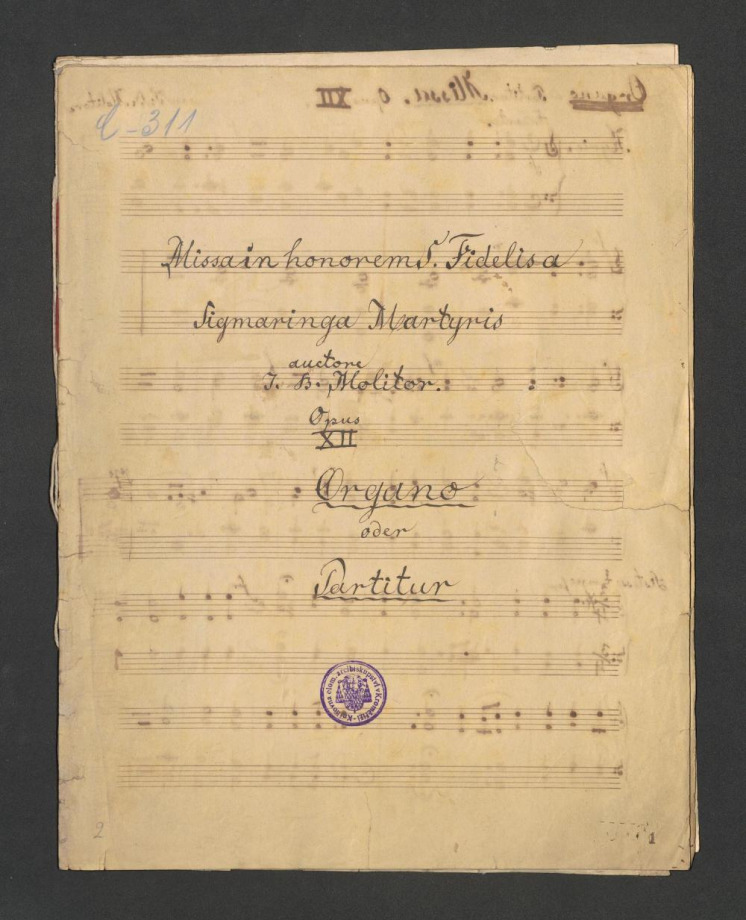 C-311
Missa in honorem S. Fidelis a.
Sigmaringa Martyris
auctore
J. B. Molitor.
Opus
XII
Organo
oder
Partitur
Knihovna olom. arcibiskupství v Kroměříži
2
1